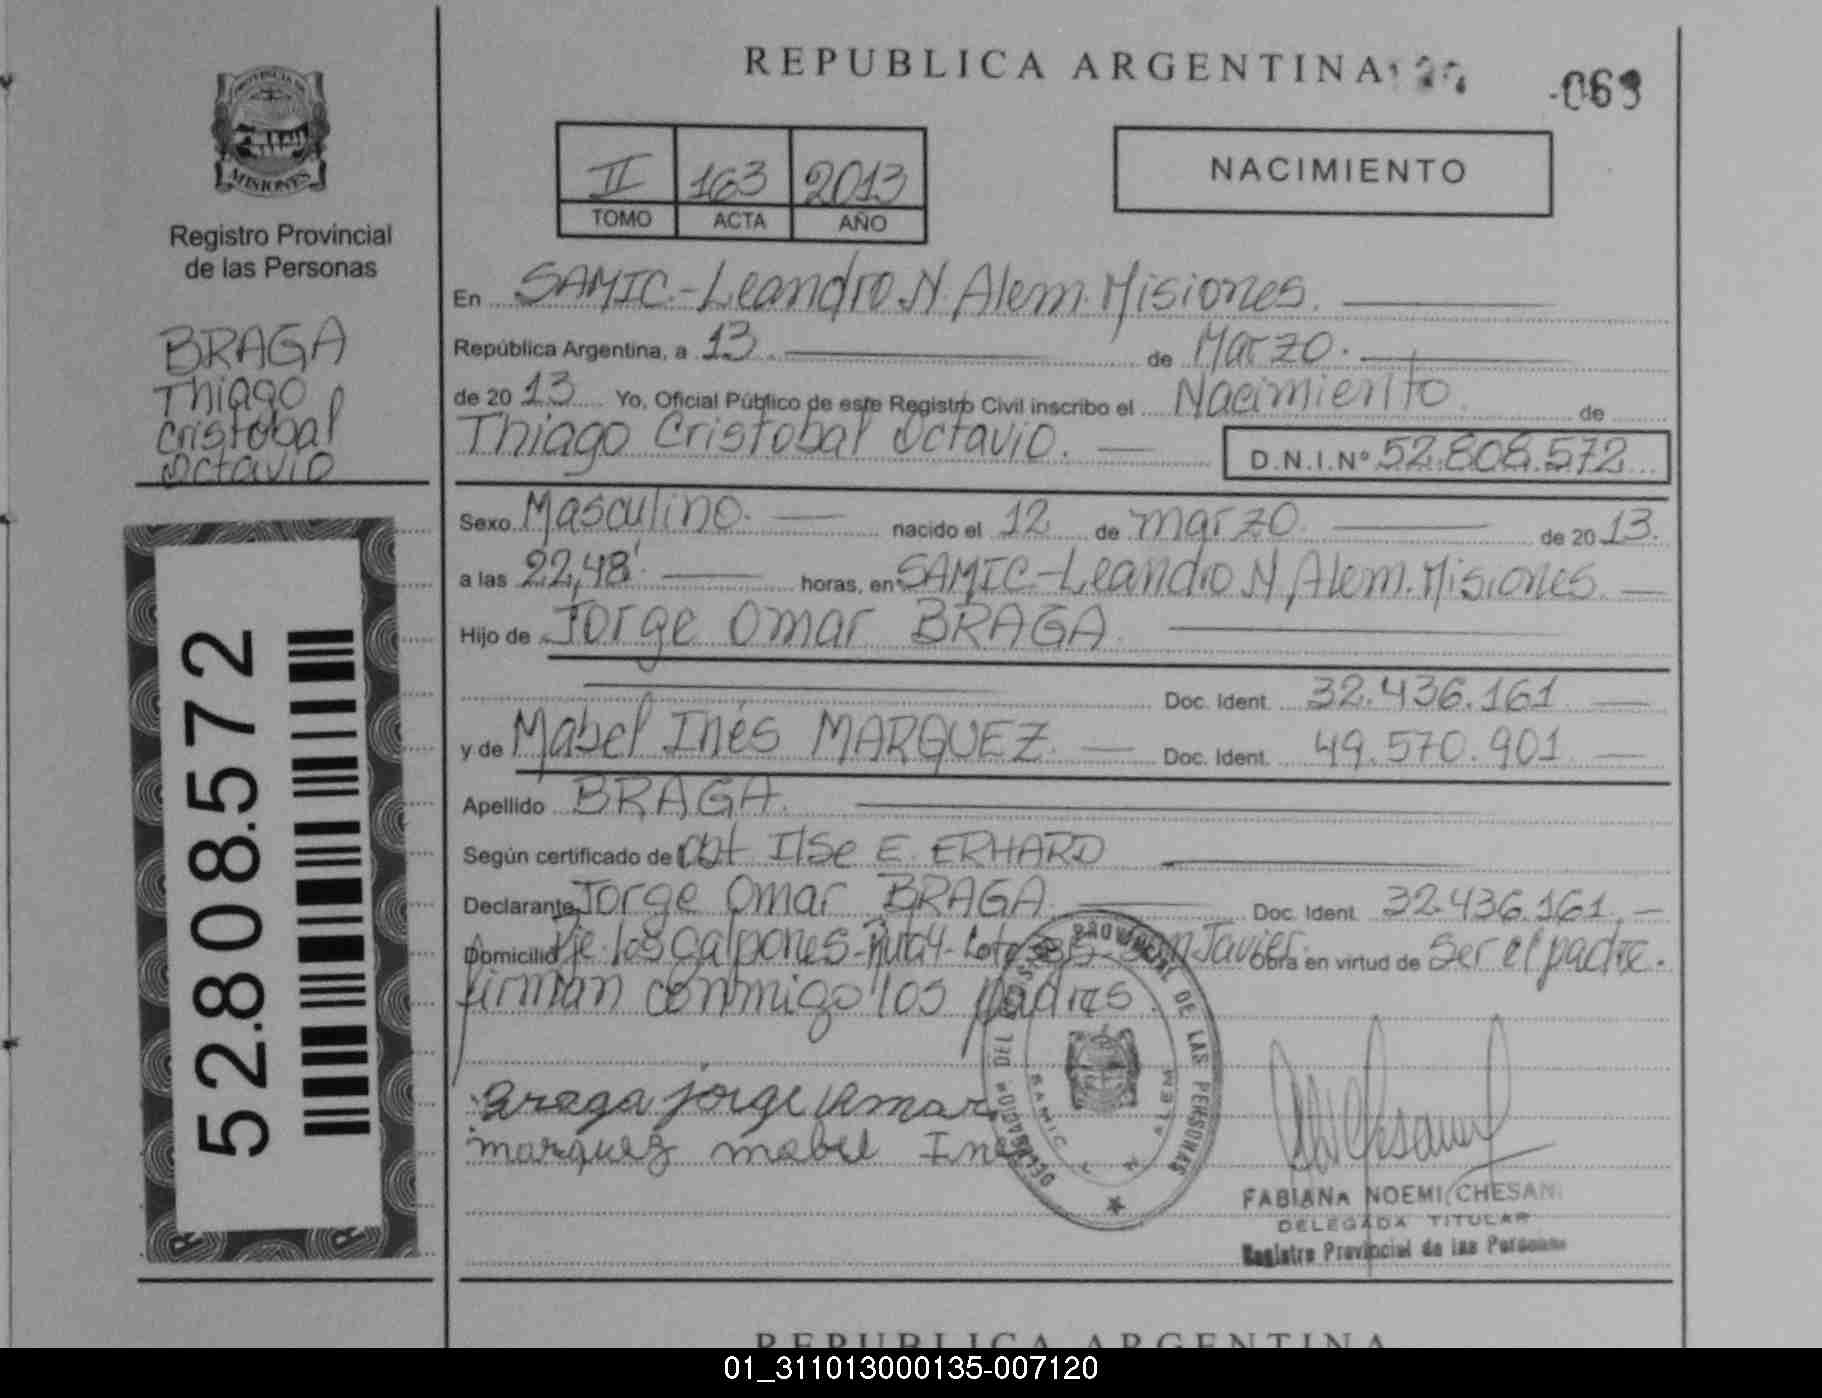 REPUBLICA ARGENTINA
063
PROVINCIA DE
MISIONES
Registro Provincial
de las Personas
BRAGA
Thiago
Cristobal
Octavio
52.808.572
II 163 2013
TOMO ACTA AÑO
NACIMIENTO
En SAMIC.-Leandro N. Alem. Misiones.
República Argentina, a 13. de Marzo.
de 20 13 Yo, Oficial Público de este Registro Civil inscribo el Nacimiento de
Thiago Cristobal Octavio. D.N.I.Nº 52.808.572
Sexo Masculino. nacido el 12 de marzo. de 20 13.
a las 22,48'. horas, en SAMIC-Leandro N. Alem. Misiones.
Hijo de Jorge Omar BRAGA.
Doc. Ident. 32.436.161
y de Mabel Inés MARQUEZ. Doc. Ident. 49.570.901
Apellido BRAGA.
Según certificado de Obt Ilse E. ERHARD
Declarante Jorge Omar BRAGA. Doc. Ident. 32.436.161.
Domicilio los galpones-Ruta 4- Javier. Obra en virtud de Ser el padre.
firman conmigo los padres.
Braga jorge Omar
marquez mabel Ines
PROVINCIAL DE LAS PERSONAS
DEL
SAMIC L N ALEM
FABIANA NOEMI CHESANI
DELEGADA TITULAR
Registro Provincial de las Personas
REPUBLICA ARGENTINA
01_311013000135-007120